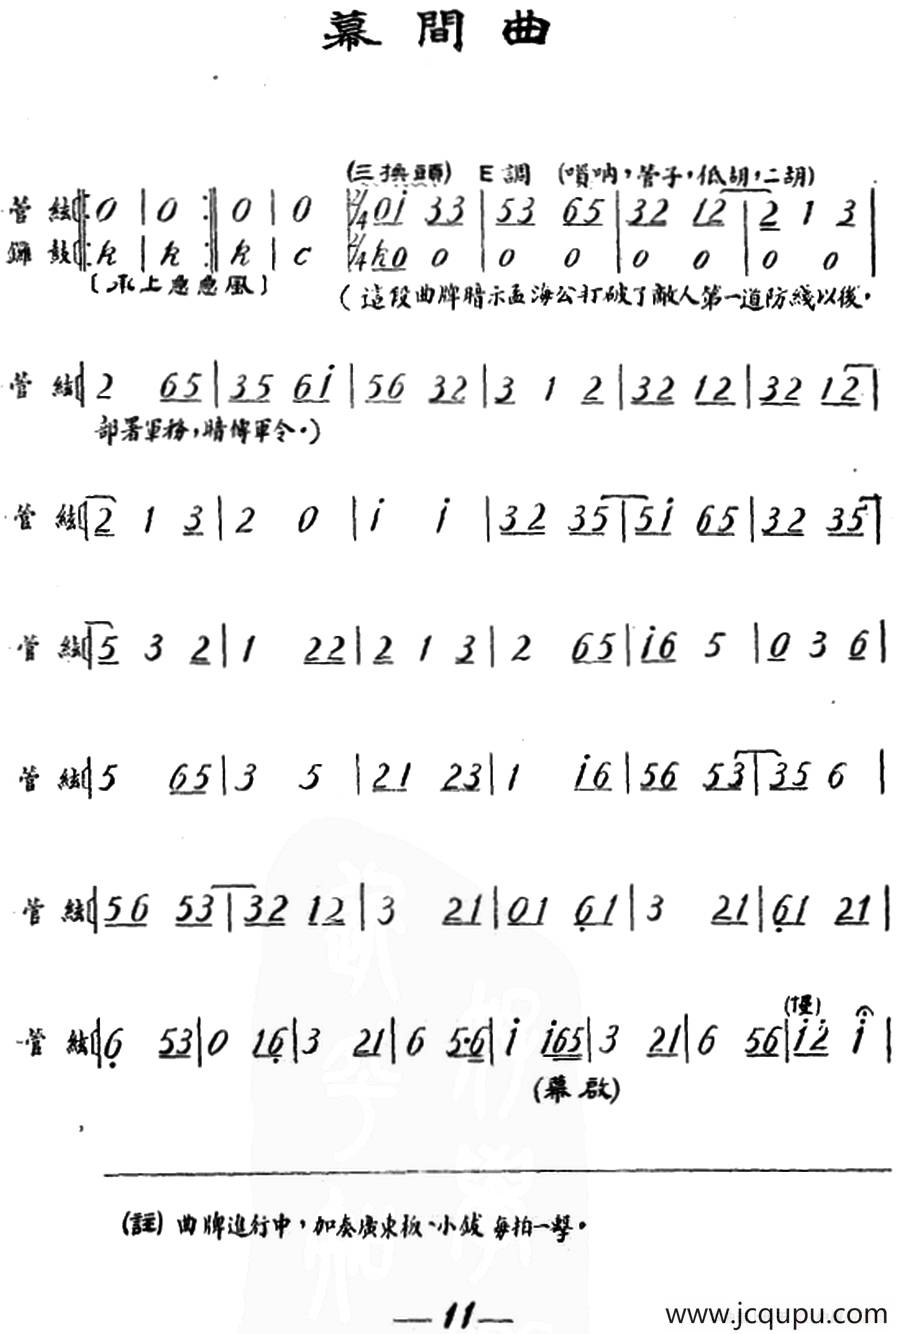 幕間曲
(三換頭) E調 (嗩吶,管子,低胡,二胡)
管絃 0 | 0 :‖ 0 | 0 2/4 0i 33 | 53 65 | 32 12 | 2 1 3 |
鑼鼓 K | K :‖ K | C 2/4 K0 0 | 0 0 | 0 0 | 0 0 |
〔水上急急風〕
(這段曲牌暗示孟海公打破了敵人第一道防綫以後。
管絃 2 65 | 35 6i | 56 32 | 3 1 2 | 32 12 | 32 12 |
部署軍務,暗傳軍令。)
管絃 2 1 3 | 2 0 | i i | 32 35 | 5i 65 | 32 35 |
管絃 5 3 2 | 1 22 | 2 1 3 | 2 65 | i6 5 | 0 3 6 |
管絃 5 65 | 3 5 | 21 23 | 1 i6 | 56 53 | 35 6 |
管絃 56 53 | 32 12 | 3 21 | 01 61 | 3 21 | 61 21 |
管絃 6 53 | 0 16 | 3 21 | 6 5·6 | i i65 | 3 21 | 6 56 | i2 i |
(慢)
(幕啟)
(註) 曲牌進行中,加奏廣東板、小鈸 每拍一擊。
— 11 —
www.jcqupu.com